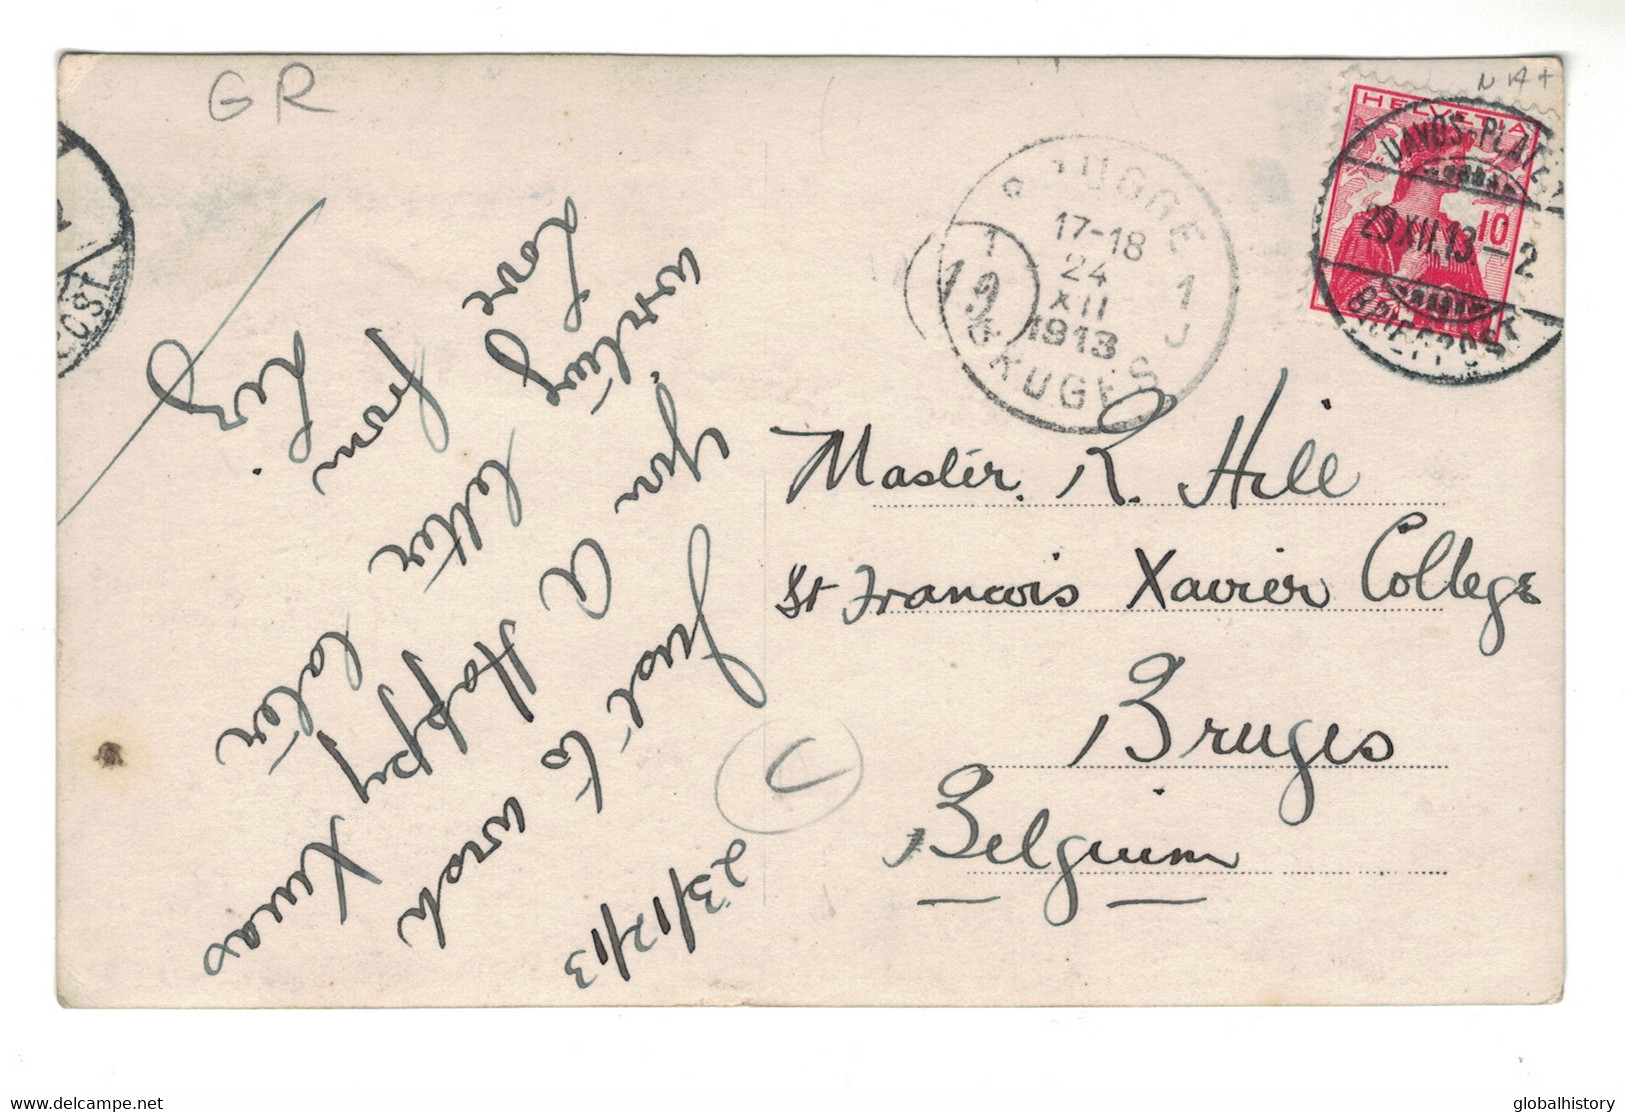 GR
HELVETIA
10
DAVOS-PLATZ
23.XII.13.-2
BRIEFPOST
BRUGGE 1
17-18
24
XII
1913
BRUGES
1
19
J
Master. R. Hill
St Francois Xavier College
Bruges
Belgium
23/12/13
Just to wish
you A Happy Xmas
writing letter later
Love from
Liz
www.delcampe.net
globalhistory